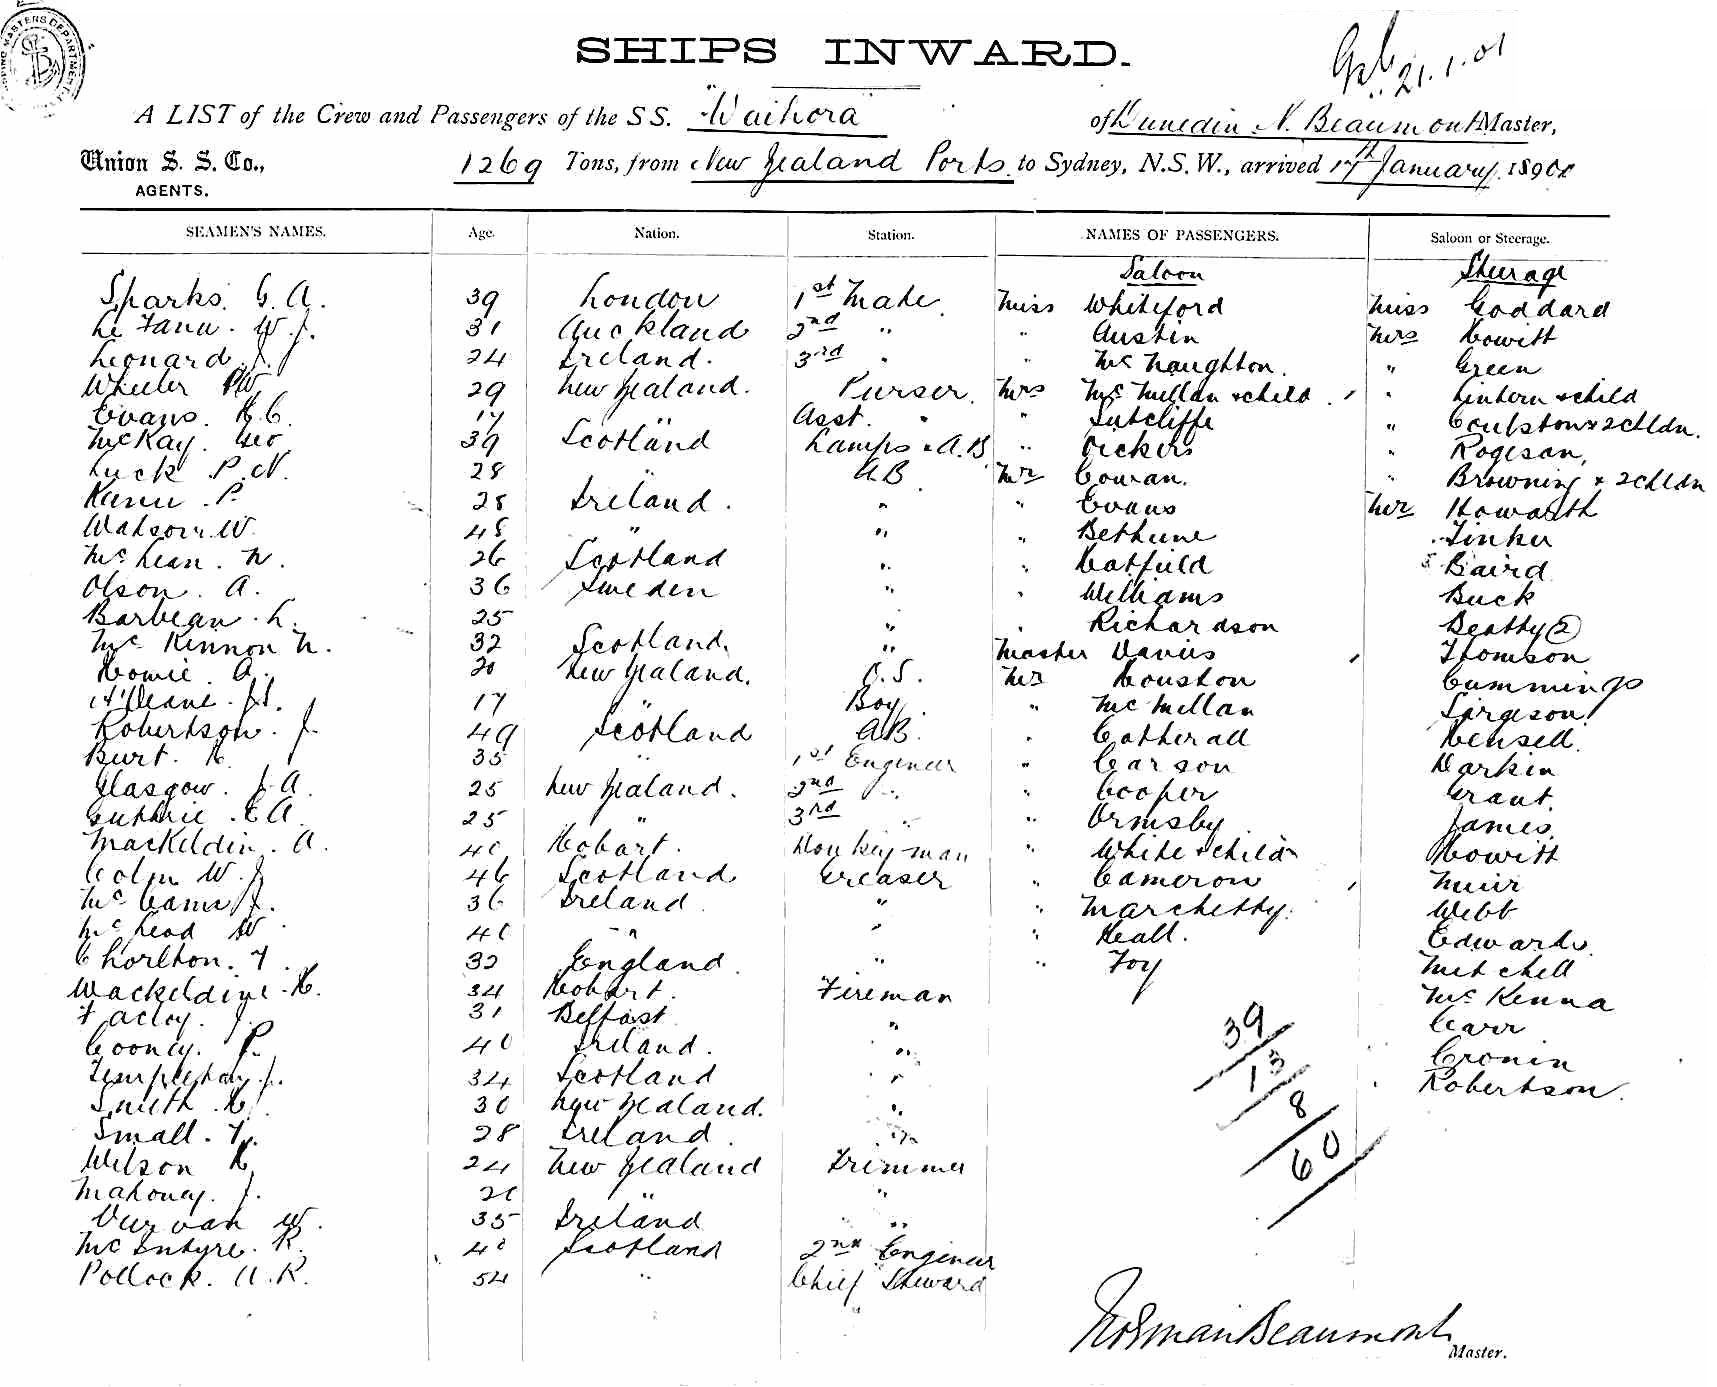 SHIPPING MASTERS DEPARTMENT
SHIPS INWARD.
21.1.01
A LIST of the Crew and Passengers of the SS. "Waihora" of Dunedin N. Beaumont Master,
Union S. S. Co., 1269 Tons, from New Zealand Ports to Sydney, N.S.W., arrived 17th January 190
AGENTS.
SEAMEN'S NAMES. Age. Nation. Station. NAMES OF PASSENGERS. Saloon or Steerage.
Saloon Steerage
Sparks. G. A. 39 London 1st Mate Miss Whiteford Miss Goddard
Le Fanu. W. J. 31 Auckland 2nd " " Austin Mrs Howitt
Leonard. J. 24 Ireland. 3rd " " McNaughton. " Green
Wheeler PW 29 New Zealand. Purser. Mrs McMillan & child " Lintern & child
Evans. H. C. 17 Asst. " " Sutcliffe " Coulston & 2 chldn.
McKay. Geo 39 Scotland Lamps & A.B " Vickers " Rogeson,
Luck P. N. 28 " AB Mr Cowan. " Browning & 2 chldn
P. 28 Ireland. " " Evans Mr Howarth
Watson. W. 48 " " " Bethune " Tinker
McLean. N. 26 Scotland " " Hatfield " Baird
Olson. A. 36 Sweden " " Williams Buck
Barbean. L. 25 " " Richardson Beatty (2)
McKinnon N. 32 Scotland. " Master Davies Thomson
Howie. A. 20 New Zealand. O.S. Mr Houston Cummings
17 " Boy. " McMillan Sargeson
Robertson. J. 49 Scotland AB. " Catherall Hensell.
Burt. H. 35 " 1st Engineer " Carson Darkin
Glasgow. J. A. 25 New Zealand. 2nd " " Cooper Grant.
Guthrie. E A. 25 " 3rd " " Ormsby James.
Mackeldin. A. 40 Hobart. Donkeyman " White & child Howitt
Colin W. J. 46 Scotland Greaser " Cameron Muir
McCann J. 36 Ireland. " " Marchetty. Webb
McLeod W. 40 " " " Heall. Edwards.
Chorlton. F. 32 England. " " Foy Mitchell
Mackeldine. H. 34 Hobart. Fireman McKenna
J. 31 Belfast " Carr
Cooney. P. 40 Ireland. " Cronin
Templeton. J. 34 Scotland " Robertson.
Smith. H. 30 New Zealand. "
Small. F. 28 Ireland. "
Wilson H. 24 New Zealand Trimmer
Mahoney. J. " "
W. 35 Ireland "
McIntyre. R. 40 Scotland 2nd Engineer
Pollock. A. R. 54 " Chief Steward
39
13
8
60
Norman Beaumont
Master.